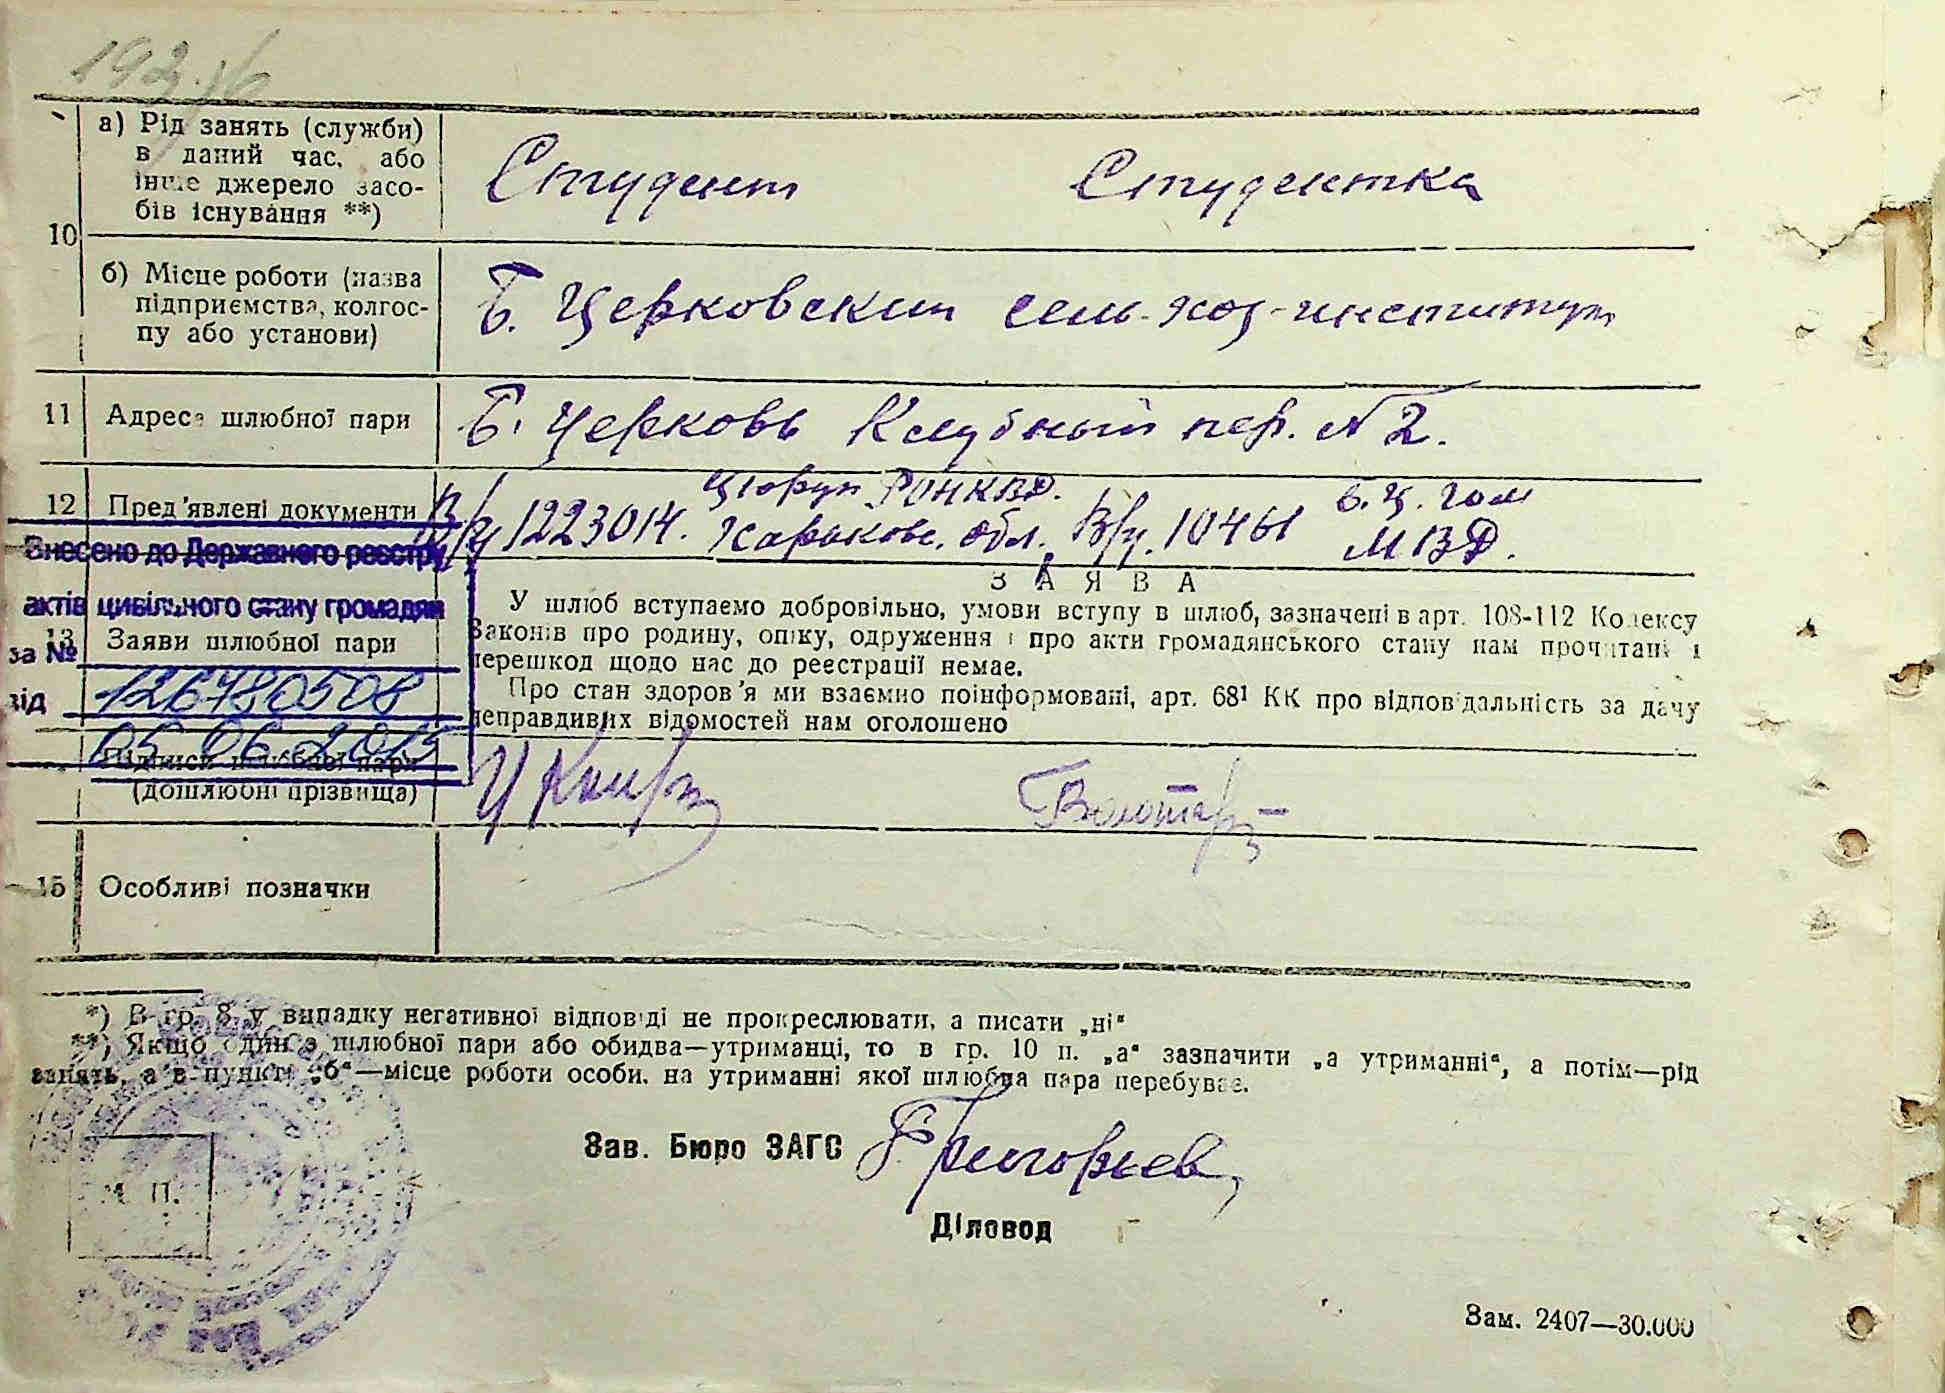 10
а) Рід занять (служби)
в даний час, або
інше джерело засо-
бів існування **)
Студент Студентка
б) Місце роботи (назва
підприємства, колгос-
пу або установи)
Б. Церковский сель-хоз-институт
11 Адреса шлюбної пари
Б. Церковь Клубный пер. № 2.
12 Пред'явлені документи
В/у 1223014. РОНКВД.
Харьковс. обл. В/у. 10461 Б.Ц. гом
МВД.
Внесено до Державного реєстру
актів цивільного стану громадян
за №
126780508
від
05 06 2015
13 Заяви шлюбної пари
ЗАЯВА
У шлюб вступаємо добровільно, умови вступу в шлюб, зазначені в арт. 108-112 Кодексу
Законів про родину, опіку, одруження і про акти громадянського стану нам прочитані і
перешкод щодо нас до реєстрації немає.
Про стан здоров'я ми взаємно поінформовані, арт. 68¹ КК про відповідальність за дачу
неправдивих відомостей нам оголошено
Підписи шлюбної пари
(дошлюбні прізвища)
15 Особливі позначки
*) В гр. 8 у випадку негативної відповіді не прокреслювати, а писати „ні“
**) Якщо один з шлюбної пари або обидва—утриманці, то в гр. 10 п. „а“ зазначити „а утриманні“, а потім—рід
занять, а в пункті „б“—місце роботи особи, на утриманні якої шлюбна пара перебуває.
Зав. Бюро ЗАГС Григорьев
М. П.
Діловод
Зам. 2407—30.000